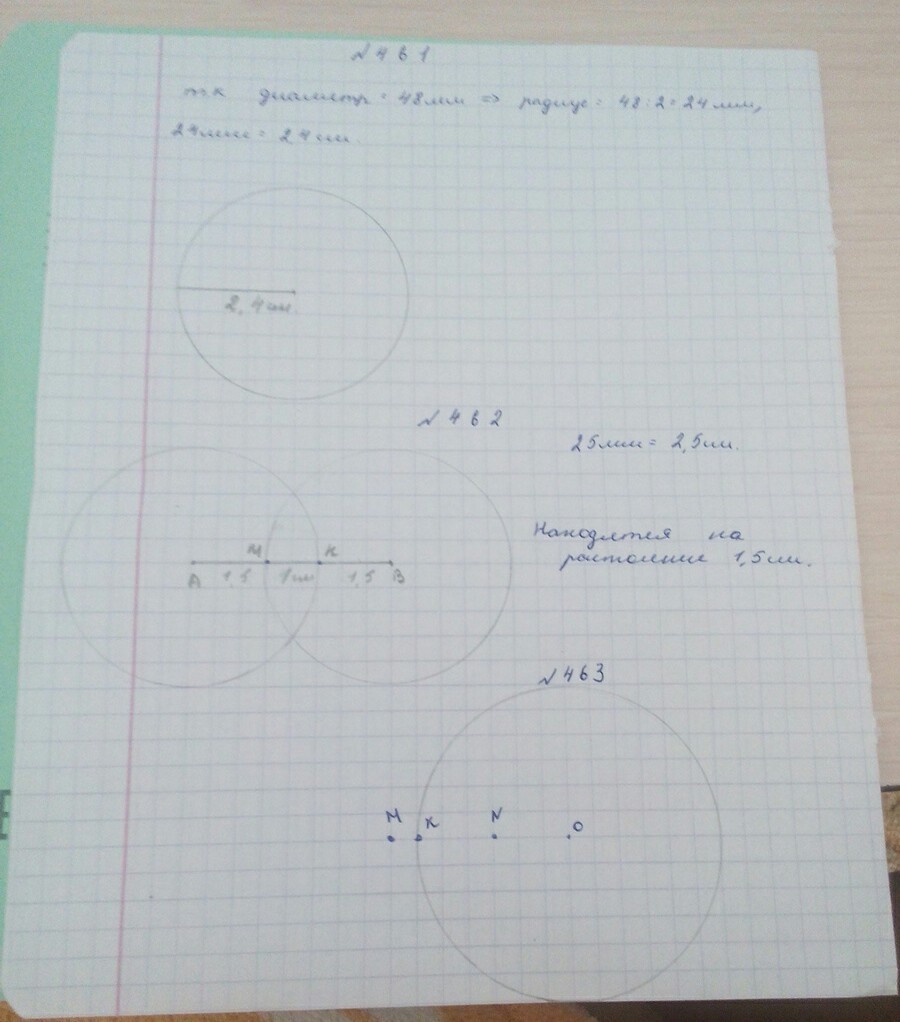 №461
т.к диаметр = 48мм => радиус = 48:2=24мм,
24мм = 2,4см.
2,4см.
№462
25мм = 2,5см.
Находятся на
растоление 1,5см.
М К
А 1,5 1см 1,5 В
№463
М К N О